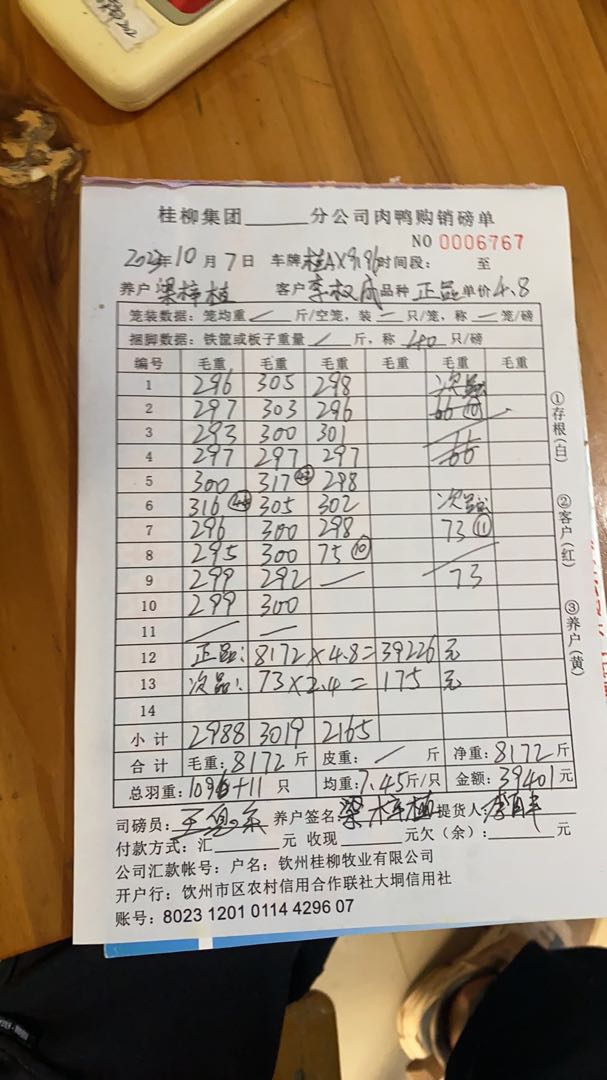 桂柳集团______分公司肉鸭购销磅单
NO 0006767
2023年10月7日 车牌桂AX9196时间段: 至
养户 梁梓植 客户 李权成 品种 正品 单价4.8
笼装数据:笼均重 / 斤/空笼,装 / 只/笼,称 / 笼/磅
捆脚数据:铁筐或板子重量 / 斤,称 40 只/磅
编号 毛重 毛重 毛重 毛重 毛重 毛重
1 296 305 298 次品
2 297 303 296 66 ⑩
3 293 300 301
4 297 297 297 66
5 300 317 298
6 316 305 302 次品
7 296 300 298 73 ⑪
8 295 300 75 ⑩
9 299 292 — 73
10 299 300
11 — —
12 正品: 8172×4.8= 39226 元
13 次品: 73×2.4= 175 元
14
小计 2988 3019 2165
合计 毛重:8172斤 皮重: / 斤 净重:8172斤
总羽重:1096+11 只 均重:7.45斤/只 金额:39401元
司磅员: 养户签名: 梁梓植 提货人:
付款方式:汇______元 收现______元欠(余):______元
公司汇款帐号:户名:钦州桂柳牧业有限公司
开户行:钦州市区农村信用合作联社大垌信用社
账号:8023 1201 0114 4296 07
①存根(白)
②客户(红)
③养户(黄)